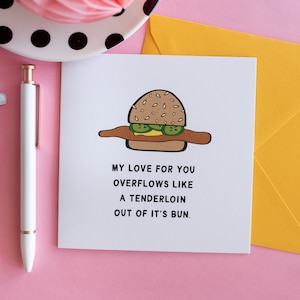 MY LOVE FOR YOU
OVERFLOWS LIKE
A TENDERLOIN
OUT OF IT'S BUN.